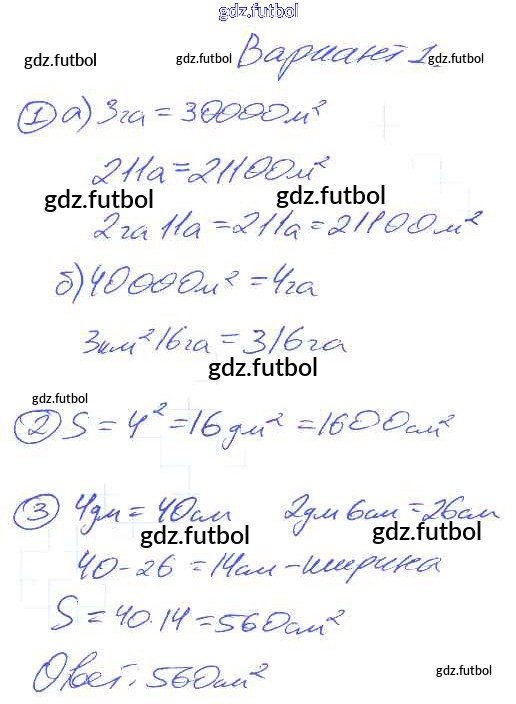 gdz.futbol
gdz.futbol Вариант 1. gdz.futbol
① а) 3га = 30000м²
211а = 21100м²
gdz.futbol gdz.futbol
2га 11а = 211а = 21100м²
б) 40000м² = 4га
3км² 16га = 316га
gdz.futbol
gdz.futbol
② S = 4² = 16дм² = 1600см²
③ 4дм = 40см 2дм 6см = 26см
gdz.futbol gdz.futbol
40 - 26 = 14см - ширина
S = 40·14 = 560см²
gdz.futbol gdz.futbol
Ответ: 560см²
gdz.futbol